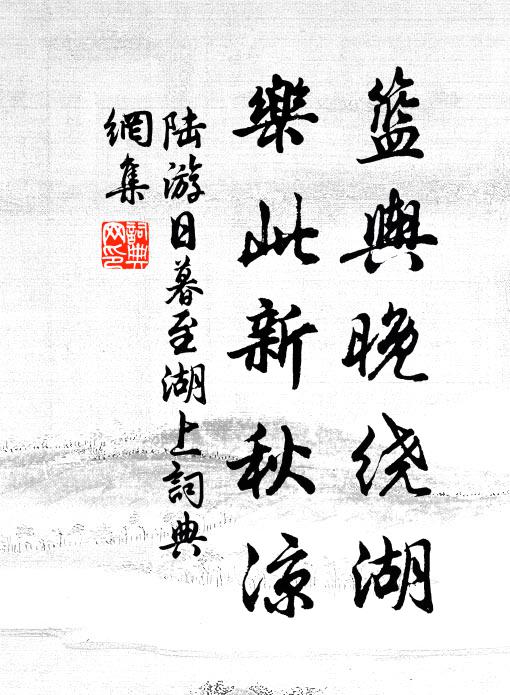 篮舆晚绕湖
樂此新秋凉
陆游日暮至湖上詞典
網集
詞典
网印